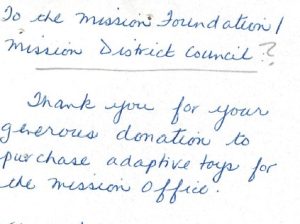 To the Mission Foundation /
Mission District Council ?
Thank you for your
generous donation to
purchase adaptive toys for
the Mission Office.